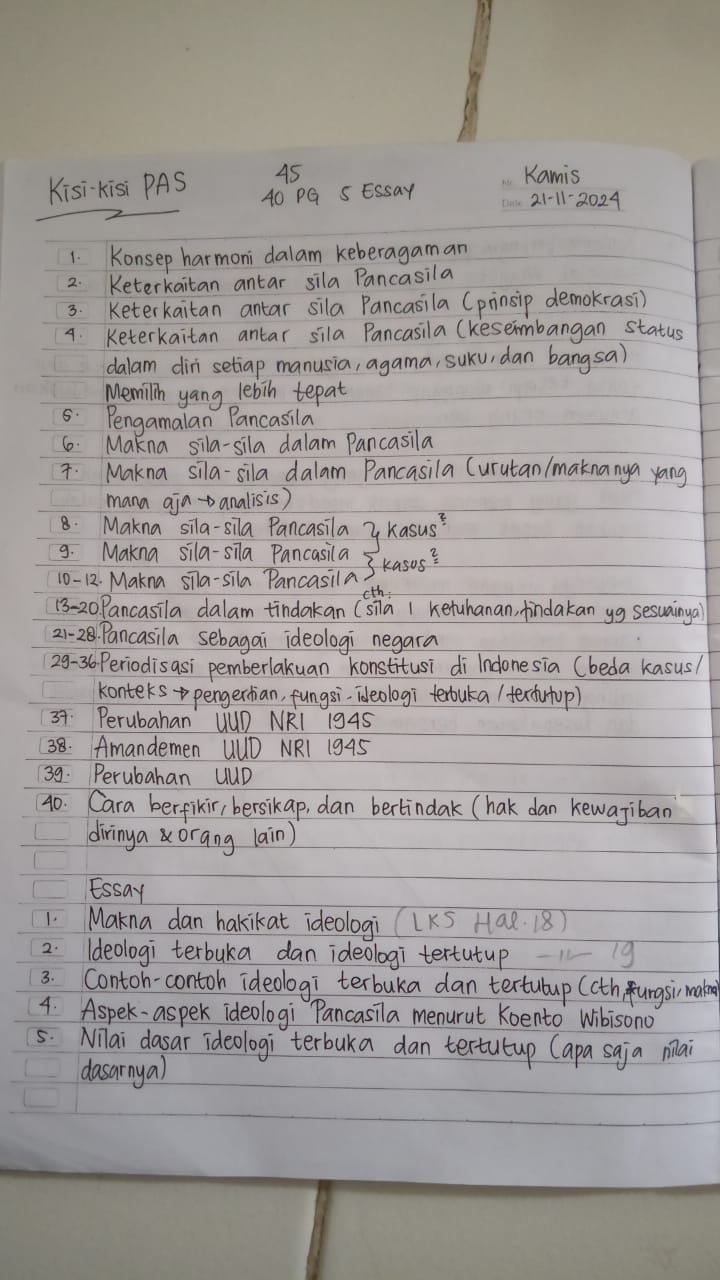 Kisi-kisi PAS
45
40 PG 5 ESSAY
No. Kamis
Date 21-11-2024
1. Konsep harmoni dalam keberagaman
2. Keterkaitan antar sila Pancasila
3. Keterkaitan antar sila Pancasila (prinsip demokrasi)
4. Keterkaitan antar sila Pancasila (keseimbangan status
dalam diri setiap manusia, agama, suku, dan bangsa)
Memilih yang lebih tepat
5. Pengamalan Pancasila
6. Makna sila-sila dalam Pancasila
7. Makna sila-sila dalam Pancasila (urutan/maknanya yang
mana aja → analisis)
8. Makna sila-sila Pancasila } kasus²
9. Makna sila-sila Pancasila } kasus²
10-12. Makna sila-sila Pancasila
13-20. Pancasila dalam tindakan (cth: sila 1 ketuhanan, tindakan yg sesuainya)
21-28. Pancasila sebagai ideologi negara
29-36. Periodisasi pemberlakuan konstitusi di Indonesia (beda kasus/
konteks → pengertian, fungsi-ideologi terbuka/tertutup)
37. Perubahan UUD NRI 1945
38. Amandemen UUD NRI 1945
39. Perubahan UUD
40. Cara berfikir, bersikap, dan bertindak (hak dan kewajiban
dirinya & orang lain)
Essay
1. Makna dan hakikat ideologi (LKS Hal. 18)
2. Ideologi terbuka dan ideologi tertutup —||— 19
3. Contoh-contoh ideologi terbuka dan tertutup (cth, fungsi, makna)
4. Aspek-aspek ideologi Pancasila menurut Koento Wibisono
5. Nilai dasar ideologi terbuka dan tertutup (apa saja nilai
dasarnya)